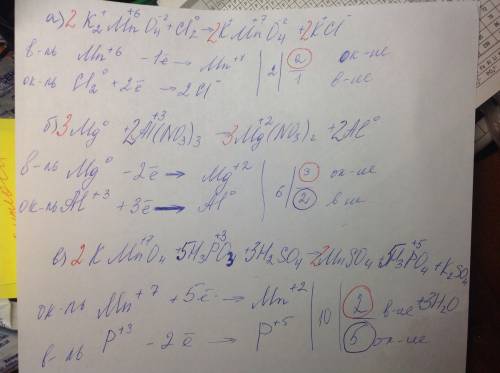 а) 2 K₂⁺Mn⁺⁶O₄⁻² + Cl₂⁰ → 2K⁺Mn⁺⁷O₄⁻² + 2K⁺Cl⁻
в-ль Mn⁺⁶ - 1ē → Mn⁺⁷ | 2 | 2 ок-ие
ок-ль Cl₂⁰ + 2ē → 2Cl⁻ | 1 в-ие
б) 3Mg⁰ + 2Al⁺³(NO₃)₃ → 3Mg⁺²(NO₃)₂ + 2Al⁰
в-ль Mg⁰ - 2ē → Mg⁺² | 6 | 3 ок-ие
ок-ль Al⁺³ + 3ē → Al⁰ | 2 в-ие
в) 2 K Mn⁺⁷O₄ + 5H₃P⁺³O₃ + 3H₂SO₄ → 2MnSO₄ + 5H₃P⁺⁵O₄ + K₂SO₄
+ 3H₂O
ок-ль Mn⁺⁷ + 5ē → Mn⁺² | 10 | 2 в-ие
в-ль P⁺³ - 2ē → P⁺⁵ | 5 ок-ие